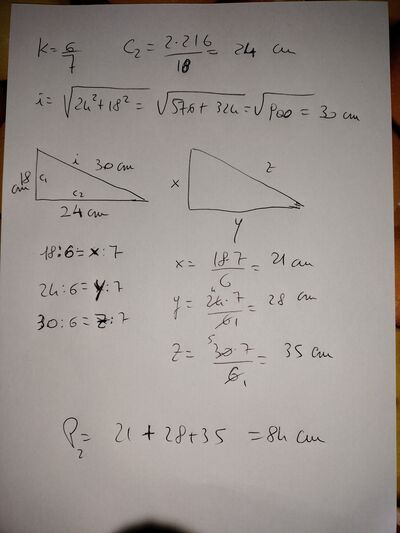 K = 6/7 C₂ = 2·216/18 = 24 cm
i = √24²+18² = √576+324 = √900 = 30 cm
18 cm C₁ i 30 cm C₂ 24 cm
x z y
18:6 = x:7 x = 18·7/6 = 21 cm
24:6 = y:7 y = 24·7/6 = 28 cm
30:6 = z:7 z = 30·7/6 = 35 cm
P₂ = 21 + 28 + 35 = 84 cm